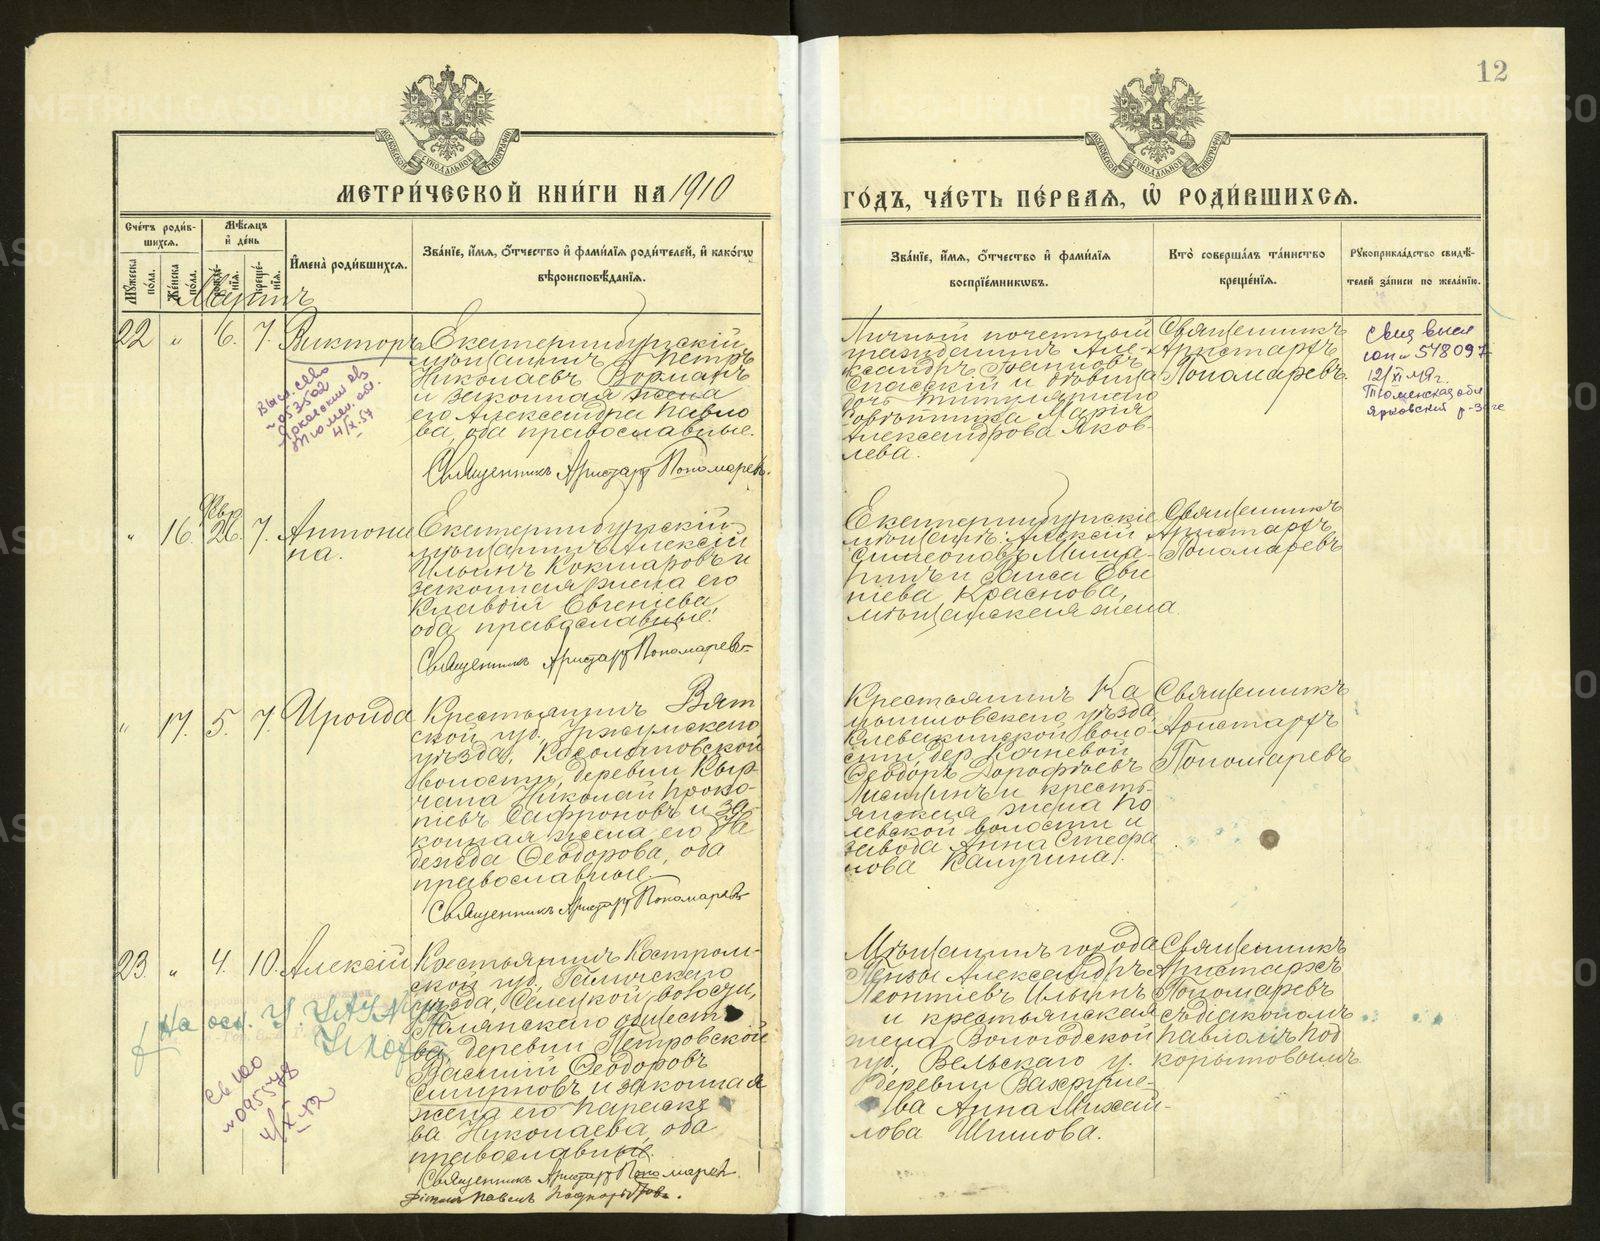 12
МЕТРИ́ЧЕСКОЙ КНИ́ГИ НА 1910
ГО́ДЪ, ЧА́СТЬ ПЕ́РВАЯ, Ѡ҆ РОДИ́ВШИХСЯ.
Сче́тъ роди́вшихся.
Му́жеска по́ла.
Же́нска по́ла.
Мѣ́сяцъ и҆ де́нь
рожде́нїя.
креще́нїя.
И҆мена̀ роди́вшихся.
Зва́нїе, и҆́мя, ѻ҆́тчество и҆ фами́лїя роди́телей, и҆ како́гѡ
вѣроисповѣ́данїя.
Зва́нїе, и҆́мя, ѻ҆́тчество и҆ фами́лїя
воспрїе́мникѡвъ.
Кто̀ соверша́лъ та́инство
креще́нїя.
Рꙋкоприкла́дство свидѣ́-
телей за́писи по жела́нїю.
Мартъ
22 " 6. 7. Викторъ
Екатеринбургскій
мѣщанинъ Петръ
Николаевъ Ворманъ
и законная жена
его Александра Павло
ва, оба православные.
Священникъ Аристархъ Пономаревъ.
Личный почетный
гражданинъ Але-
ксандръ Іоанновъ
Спасскій и дѣвица
дочь титулярнаго
совѣтника Марія
Александрова Яков-
лева.
Священникъ
Аристархъ
Пономаревъ.
№ 548097
12/XI 49 г.
Тюменская обл
Ярковский р-н
4/X-57
" 16. Февр 26. 7. Антони
на.
Екатеринбургскій
мѣщанинъ Алексій
Ильинъ Кокшаровъ и
законная жена его
Клавдія Евгеніева,
оба православные.
Священникъ Аристархъ Пономаревъ
Екатеринбургскіе
мѣщане: Алексій
Симеоновъ Миша-
нинъ и Раиса Евге
ніева Краснова,
мѣщанская жена
Священникъ
Аристархъ
Пономаревъ
" 17. 5. 7. Ироида
Крестьянинъ Вят
ской губ. Уржумскаго
уѣзда, Косолаповской
волости, деревни Кыр
чана Николай Проко-
піевъ Сафроновъ и за-
конная жена его На
дежда Ѳеодорова, оба
православные
Священникъ Аристархъ Пономаревъ
Крестьянинъ Ка
мышловскаго уѣзда,
Клевакинской воло-
сти, дер. Кочневой
Ѳеодоръ Дорофѣевъ
и кресть-
янская жена По
левской волости и
завода Анна Стефа
нова Калугина.
Священникъ
Аристархъ
Пономаревъ
23. " 4. 10. Алексій
Крестьянинъ Костром-
ской губ. Галичскаго
уѣзда, Селецкой волости,
общест
ва, деревни Петровской
Василій Ѳеодоровъ
Смирновъ и законная
жена его Параске
ва Николаева, оба
православные
Священникъ Аристархъ Пономаревъ
Діаконъ Павелъ Подкорытовъ.
Мѣщанинъ города
Пензы Александръ
Леонтіевъ Ильинъ
и крестьянская
жена Вологодской
губ., Вельскаго у.
деревни Вахруше-
ва Анна Михай-
лова Шилова.
Священникъ
Аристархъ
Пономаревъ
съ діакономъ
Павломъ Под
корытовымъ
На осн.
№ 095578
4/X-42